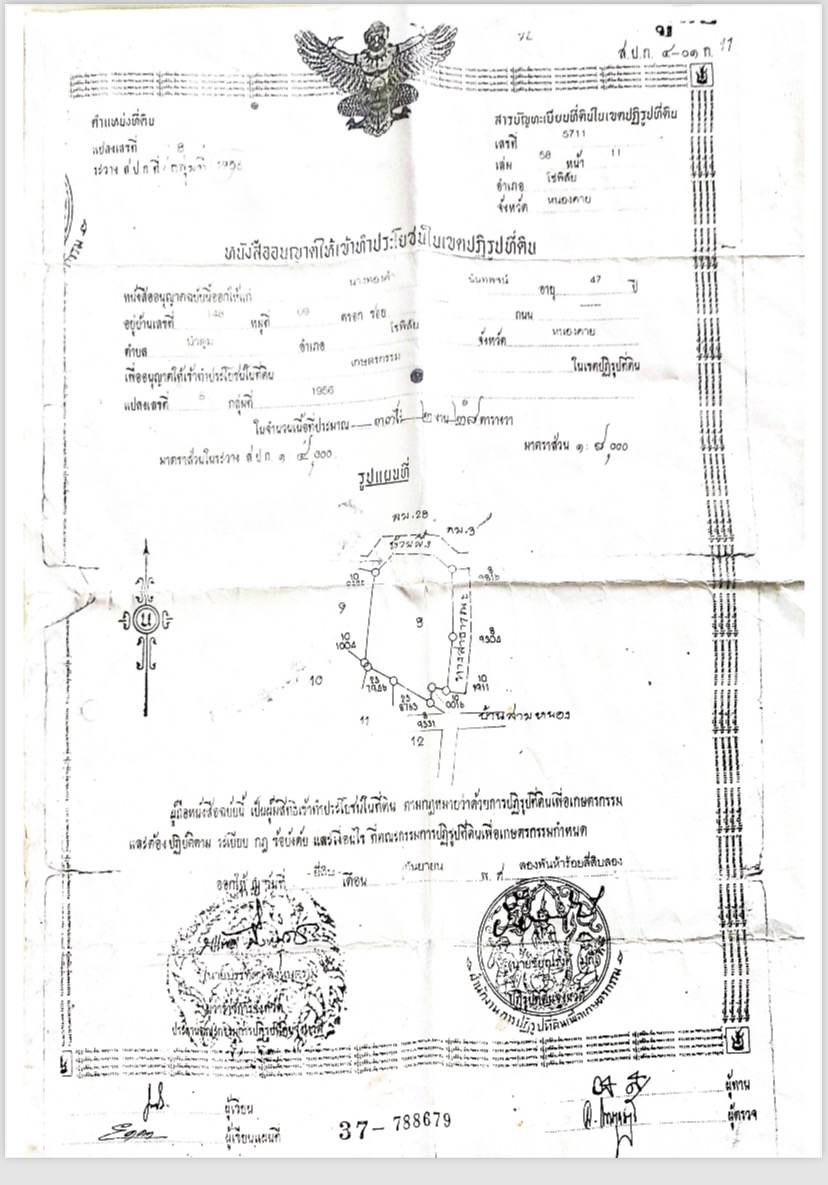 ส.ป.ก. ๔-๐๑ ก. 11
ตำแหน่งที่ดิน
แปลงเลขที่ 8
ระวาง ส.ป.ก.ที่ / กลุ่มที่ 1956
สารบัญทะเบียนที่ดินในเขตปฏิรูปที่ดิน
เลขที่ 5711
เล่ม 58 หน้า 11
อำเภอ โซ่พิสัย
จังหวัด หนองคาย
หนังสืออนุญาตให้เข้าทำประโยชน์ในเขตปฏิรูปที่ดิน
หนังสืออนุญาตฉบับนี้ออกให้แก่ นางทองคำ อายุ 47 ปี
อยู่บ้านเลขที่ 148 หมู่ที่ 09 ตรอก ซอย ถนน
ตำบล บัวตูม อำเภอ โซ่พิสัย จังหวัด หนองคาย
เพื่ออนุญาตให้เข้าทำประโยชน์ในที่ดิน เกษตรกรรม ในเขตปฏิรูปที่ดิน
แปลงเลขที่ 8 กลุ่มที่ 1956
ในจำนวนเนื้อที่ประมาณ ๓๗ ไร่ ๒ งาน ๒๗ ตารางวา
มาตราส่วนในระวาง ส.ป.ก. ๑ : ๔,๐๐๐ มาตราส่วน ๑ : ๘,๐๐๐
รูปแผนที่
ลม.28 คม.3
10 8
9816
9 8 ทางสาธารณะ
8
9304
10
1004
10 25
7946
25
8765
10
1911
10
0016
น
11 8
9531
บ้านสามหนอง
12
ผู้ถือหนังสือฉบับนี้ เป็นผู้มีสิทธิเข้าทำประโยชน์ในที่ดิน ตามกฎหมายว่าด้วยการปฏิรูปที่ดินเพื่อเกษตรกรรม
และต้องปฏิบัติตาม ระเบียบ กฎ ข้อบังคับ และเงื่อนไข ที่คณะกรรมการปฏิรูปที่ดินเพื่อเกษตรกรรมกำหนด
ออกให้ ณ วันที่ ยี่สิบ เดือน กันยายน พ.ศ. สองพันห้าร้อยสี่สิบสอง
ผู้ว่าราชการจังหวัด
ประธานคณะกรรมการปฏิรูปที่ดินจังหวัด
ปฏิรูปที่ดินจังหวัด
สำนักงานการปฏิรูปที่ดินเพื่อเกษตรกรรม
ผู้เขียน ผู้ทาน
ผู้เขียนแผนที่ 37-788679 ผู้ตรวจ